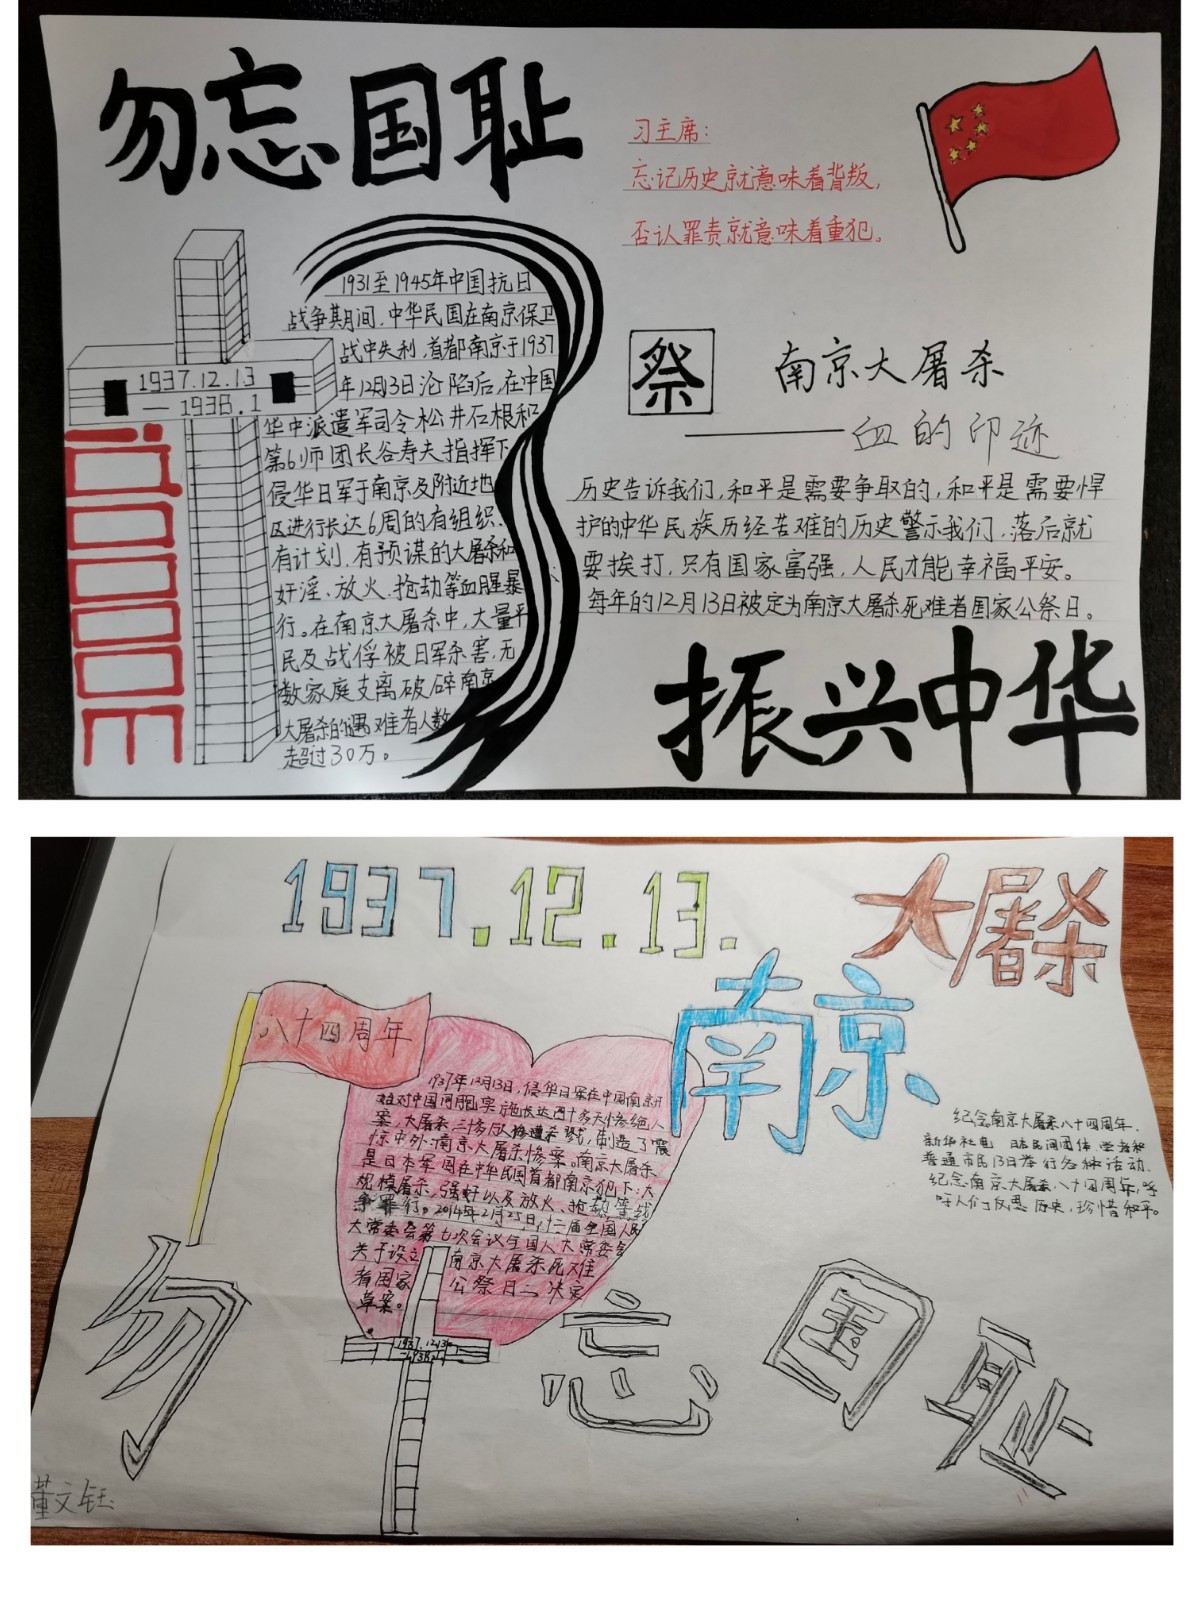 勿忘国耻
习主席:
忘记历史就意味着背叛,
否认罪责就意味着重犯。
1937.12.13
— 1938.1
1931至1945年中国抗日
战争其期间,中华民国在南京保卫
战中失利,首都南京于1937
年12月13日沦陷后,在中国
华中派遣军司令松井石根和
第6师团长谷寿夫指挥下
侵华日军于南京及附近地
区进行长达6周的有组织、
有计划、有预谋的大屠杀和
奸淫、放火、抢劫等血腥暴
行。在南京大屠杀中,大量平
民及战俘被日军杀害,无
数家庭支离破碎南京
大屠杀的遇难者人数
超过30万。
祭
南京大屠杀
——血的印迹
历史告诉我们,和平是需要争取的,和平是需要悍
护的中华民族历经苦难的历史警示我们,落后就
要挨打,只有国家富强,人民才能幸福平安。
每年的12月13日被定为南京大屠杀死难者国家公祭日。
振兴中华
1937.12.13.
大屠杀
南京
八十四周年
1937年12月13日,侵华日军在中国南京开
始对中国同胞实施长达四十多天惨绝人
案,大屠杀三十多万人惨遭杀戮,制造了震
惊中外南京大屠杀惨案。南京大屠杀
是日本军国在中华民国首都南京犯下:大
规模屠杀,强奸以及放火、抢劫等战
争罪行。2014年2月25日,十二届全国人民
大常委会第七次会议全国人大常委会
关于设立南京大屠杀死难
者国家公祭日二决定
草案。
1937.12.13
-1938.1
纪念南京大屠杀八十四周年,
新华社电 民间团体 学者和
普通市民13日举行各种活动,
纪念南京大屠杀八十四周年,呼
吁人们反思历史,珍惜和平。
勿忘国耻
董文钰